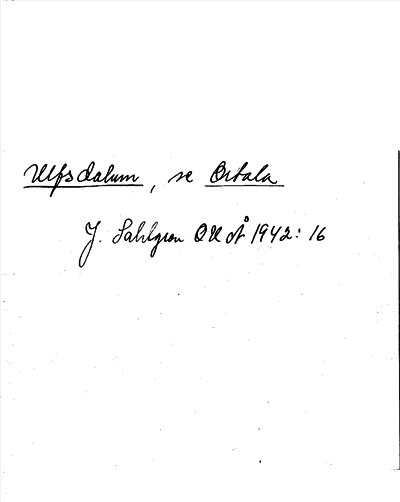 Ulfsdalum, se Ortala
J. Sahlgren OUÅ 1942: 16